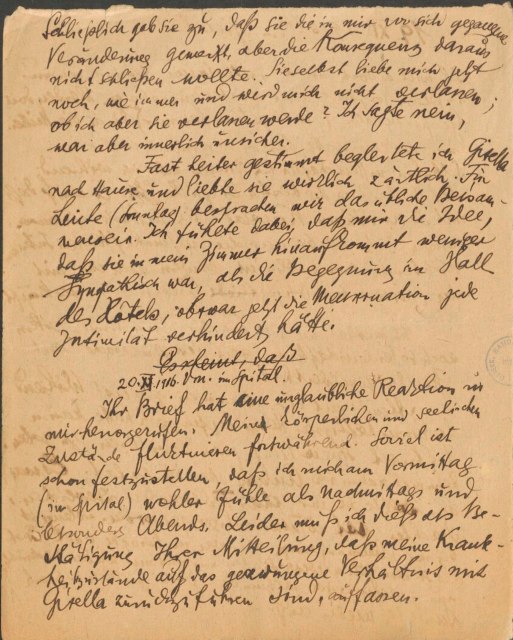 Schließlich gab sie zu, daß sie die in mir vor sich gegangene
Veränderung gemerkt, aber die Konsequenz daraus
nicht schließen wollte. Sie selbst liebe mich jetzt
noch, wie immer und wird mich nicht verlassen;
ob ich aber sie verlassen werde? Ich sagte nein,
war aber innerlich unsicher.
Fast heiter gestimmt begleitete ich Gisella
nach Hause und liebte sie wirklich zärtlich. Für
heute (Sonntag) besprachen wir das übliche Beisam-
mensein. Ich fühlte dabei, daß mir die Idee,
daß sie in mein Zimmer hinaufkommt weniger
sympathisch war, als die Begegnung im Hall
des Hotels, obzwar jetzt die Menstruation jede
Intimität verhindert hätte.
Es scheint, daß
20. XI 1916. Vm. im Spital.
Ihr Brief hat eine unglaubliche Reaktion in
mir hervorgerufen. Meine körperlichen und seelischen
Zustände fluktuieren fortwährend. Soviel ist
schon festzustellen, daß ich mich am Vormittag
(im Spital) wohler fühle als nachmittags und
besonders Abends. Leider muß ich dieß als Be-
stätigung Ihrer Mitteilung, daß meine Krank-
heitszustände auf das gezwungene Verhältnis mit
Gisella zurückzuführen sind, auffassen.